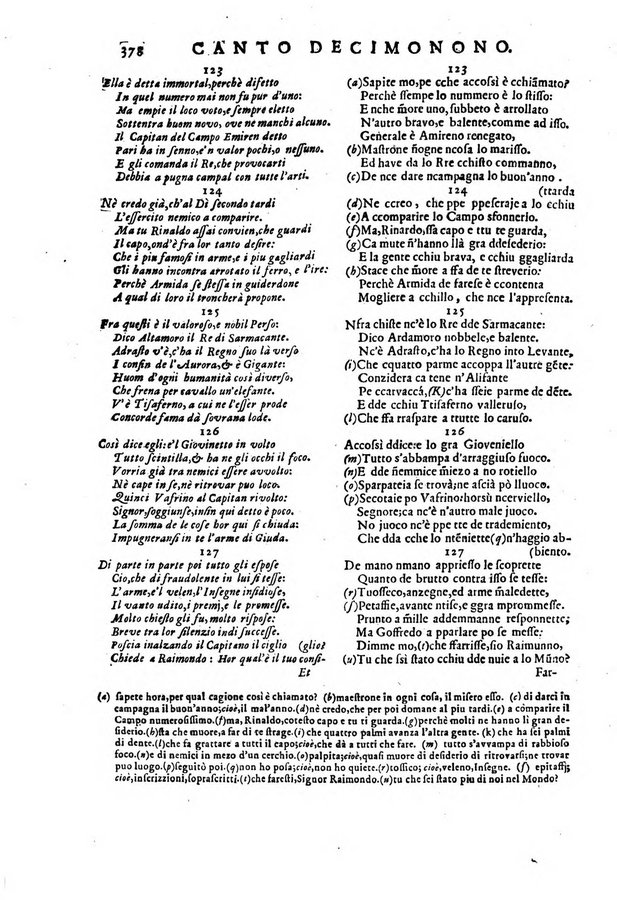 378 CANTO DECIMONONO.
123
Ella è detta immortal, perchè difetto
In quel numero mai non fu pur d'uno:
Ma empie il loco voto, e sempre eletto
Sottentra huom novo, ove ne manchi alcuno.
Il Capitan del Campo Emiren detto
Pari ha in senno, e'n valor pochi, o nessuno.
E gli comanda il Re, che provocarti
Debbia a pugna campal con tutte l'arti.
124
Nè credo già, ch'al Dì secondo tardi
L'essercito nemico a comparire.
Ma tu Rinaldo assai convien, che guardi
Il capo, ond'è fra lor tanto desire:
Che i piu famosi in arme, e i piu gagliardi
Gli hanno incontra arrotato il ferro, e l'ire:
Perchè Armida se stessa in guiderdone
A qual di loro il troncherà propone.
125
Fra questi è il valoroso, e nobil Perso:
Dico Altamoro il Re di Sarmacante.
Adrasto v'è, c'ha il Regno suo là verso
I confin de l'Aurora, & è Gigante:
Huom d'ogni humanità così diverso,
Che frena per cavallo un'elefante.
V'è Tisaferno, a cui ne l'esser prode
Concorde fama dà sovrana lode.
126
Così dice egli: e'l Giovinetto in volto
Tutto scintilla, & ha ne gli occhi il foco.
Vorria già tra nemici essere avvolto:
Nè cape in se, nè ritrovar puo loco.
Quinci Vafrino al Capitan rivolto:
Signor, soggiunse, insin quì detto è poco.
La somma de le cose hor quì si chiuda:
Impugneransi in te l'arme di Giuda.
127
Di parte in parte poi tutto gli espose
Cio, che di fraudolente in lui si tesse:
L'arme, e'l velen, l'Insegne insidiose,
Il vanto udito, i premj, e le promesse.
Molto chiesto gli fu, molto rispose:
Breve tra lor silenzio indi successe.
Poscia inalzando il Capitano il ciglio (glio?
Chiede a Raimondo: Hor qual'è il tuo consi-
Et
123
(a) Sapite mo, pe cche accossì è cchiãmato?
Perchè ssempe lo nummero è lo stisso:
E nche m̃ore uno, subbeto è arrollato
N'autro bravo, e balente, comme ad isso.
Generale è Amireno renegato,
(b) Mastrõne ñogne ncosa lo marisso.
Ed have da lo Rre cchisto commanno,
(c) De nce dare ncampagna lo buon'anno.
124 (ttarda
(d) Ne ccreo, che ppe ppeseraje a lo cchiu
(e) A ccomparire lo Campo sfonnerio.
(f) Ma, Rinardo, ssa capo e ttu te guarda,
(g) Ca mute ñ'hanno llà gra ddesederio:
E la gente cchiu brava, e cchiu ggagliarda
(h) Stace che m̃ore a ffa de te streverio:
Perchè Armida de farese è ccontenta
Mogliere a cchillo, che nce l'appresenta.
125
Nfra chiste nc'è lo Rre dde Sarmacante:
Dico Ardamoro nobbele, e balente.
Nc'è Adrasto, c'ha lo Regno into Levante,
(i) Che cquatto parme accoppa ll'autre gẽte:
Conzidera ca tene n'Alifante
Pe ccarvaccà, (K) c'ha sseie parme de dẽte.
E dde cchiu Ttisaferno valleruso,
(l) Che ffa rraspare a ttutte lo caruso.
126
Accossì ddice: e lo gra Gioveniello
(m) Tutto s'abbampa d'arraggiuso fuoco.
(n) E dde ñemmice m̃iezo a no rotiello
(o) Sparpateia se trovà; ne ascià pò lluoco.
(p) Secotaie po Vafrino: horsù ncerviello,
Segnore; ca nc'è n'autro male juoco.
No juoco nc'è ppe tte de trademiento,
Che dda cche lo ntẽniette (q) n'haggio ab-
127 (biento.
De mano nmano appriesso le scoprette
Quanto de brutto contra isso se tesse:
(r) Tuosseco, anzegne, ed arme m̃aledette,
(s) Petaffie, avante ntise, e ggra mprommesse.
Prunto a mille addemmanne rresponnette;
Ma Goffredo a pparlare po se messe:
Dimme mo, (t) che ffarrisse, sio Raimunno,
(u) Tu che ssì stato cchiu dde nuie a lo Mũno?
Far-
(a) sapete hora, per qual cagione così è chiamato? (b) maestrone in ogni cosa, il misero esso. (c) di darci in
campagna il buon'anno; cioè, il mal'anno. (d) nè credo, che per poi domane al piu tardi. (e) a comparire il
Campo numerosissimo. (f) ma, Rinaldo, cotesto capo e tu ti guarda. (g) perchè molti ne hanno lì gran de-
siderio. (h) sta che muore, a far di te strage. (i) che quattro palmi avanza l'altra gente. (k) che ha sei palmi
di dente. (l) che fa grattare a tutti il capo; cioè, dà a tutti che fare. (m) tutto s'avvampa di rabbioso
foco. (n) e di nemici in mezo d'un cerchio. (o) palpita; cioè, quasi muore di desiderio di ritrovarsi, ne trovar
puo luogo. (p) seguitò poi. (q) non ho posa; cioè, non ho quiete. (r) tossico; cioè, veleno, Insegne. (s) epitaffj;
cioè, inscrizzioni, soprascritti. (t) che faresti, Signor Raimondo. (u) tu che sei stato piu di noi nel Mondo?